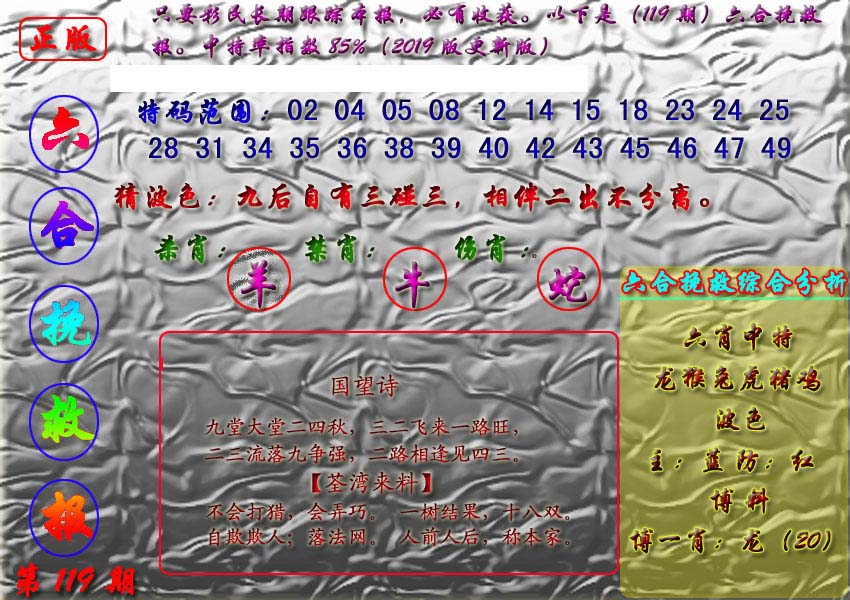 正版
只要彩民长期跟踪本报，必有收获。以下是（119期）六合挽救
报。中特率指数85%（2019版更新版）
六
合
挽
救
报
第119期
特码范围：02 04 05 08 12 14 15 18 23 24 25
28 31 34 35 36 38 39 40 42 43 45 46 47 49
猜波色：九后自有三碰三，相伴二出不分离。
杀肖：羊 禁肖：牛 伤肖：蛇。
国望诗
九堂大堂二四秋，三二飞来一路旺，
二三流落九争强，二路相逢见四三。
【荃湾来料】
不会打猎，会弄巧。 一树结果，十八双。
自欺欺人；落法网。 人前人后，称本家。
六合挽救综合分析
六肖中特
龙猴兔虎猪鸡
波色
主：蓝防：红
博料
博一肖：龙（20）